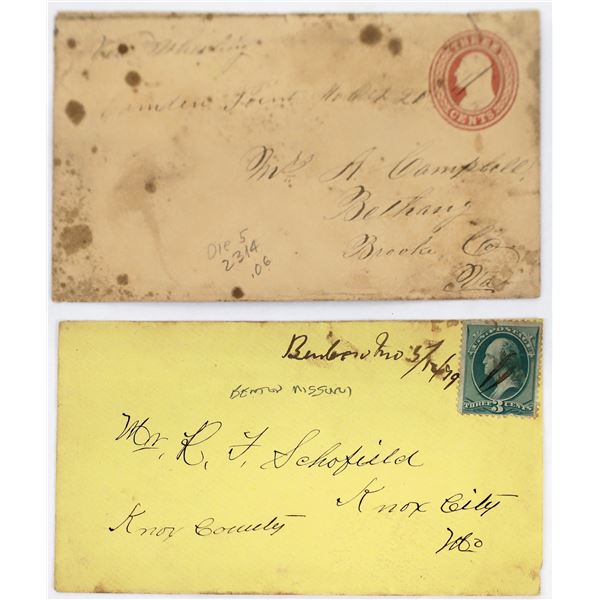 Wheeling
Camden Point Mo Oct 20
THREE
CENTS
Mrs A Campbell
Bethany
Brooke Co
Va
Die 5
2314
.06
Benbow Mo 5/12/79
BENTON MISSOURI
U.S. POSTAGE
THREE 3 CENTS
Mr. R. F. Schofield
Knox City
Knox County
Mo